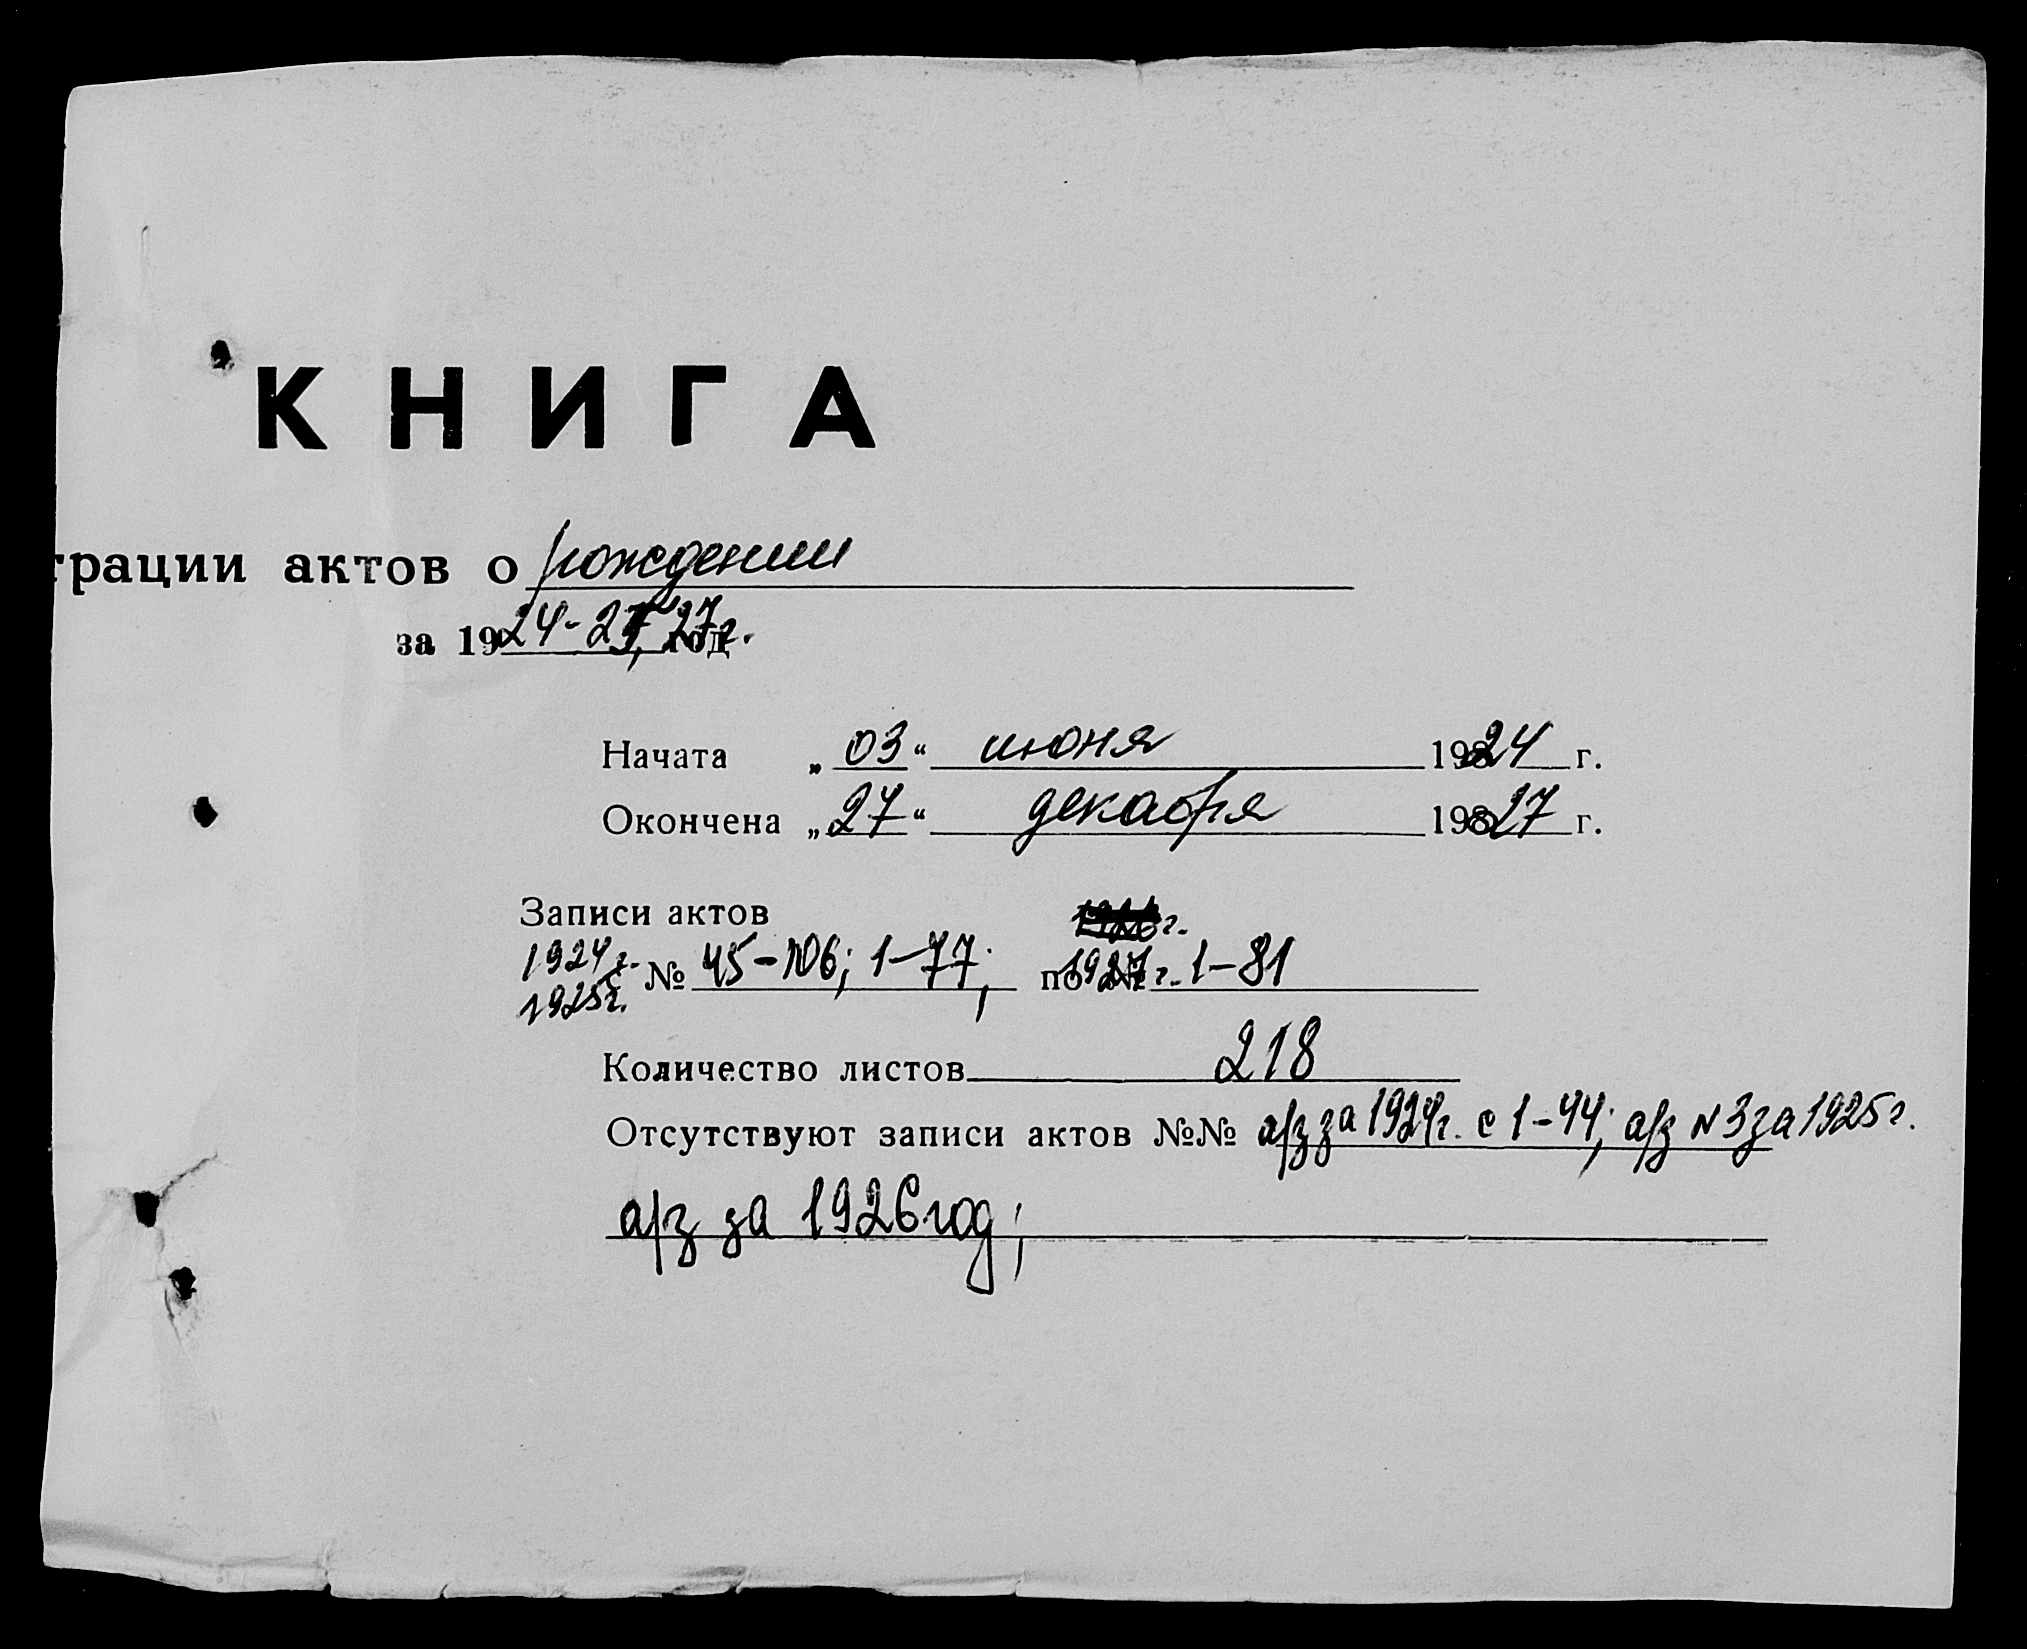 КНИГА
трации актов о рождении
за 1924-25, 27г.
Начата „03“ июня 1924 г.
Окончена „27“ декабря 1927 г.
Записи актов
1924г. № 45-106; 1-77; 1927г. 1-81
1925г.
Количество листов 218
Отсутствуют записи актов №№ а/з за 1924г. с 1-44; а/з N3 за 1925г.
а/з за 1926 год;